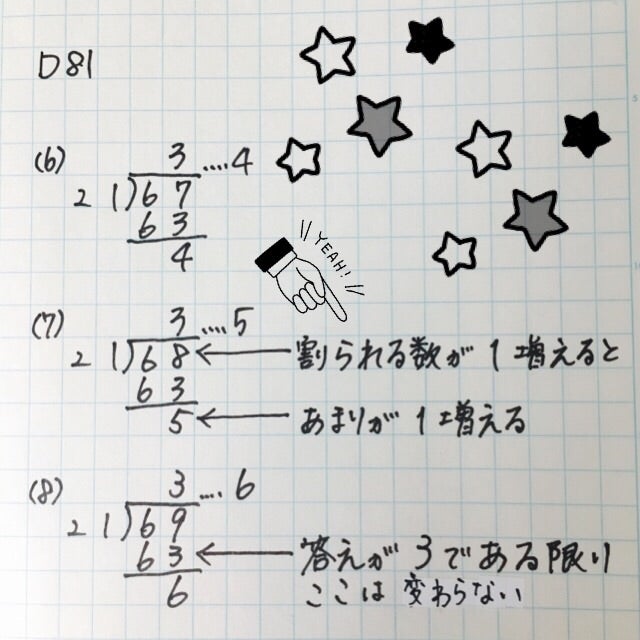 D81
(6)
3....4
21)67
63
4
YEAH!
(7)
3....5
21)68 ← 割られる数が1増えると
63
5 ← あまりが1増える
(8)
3....6
21)69
63 ← 答えが3である限り
ここは変わらない
6